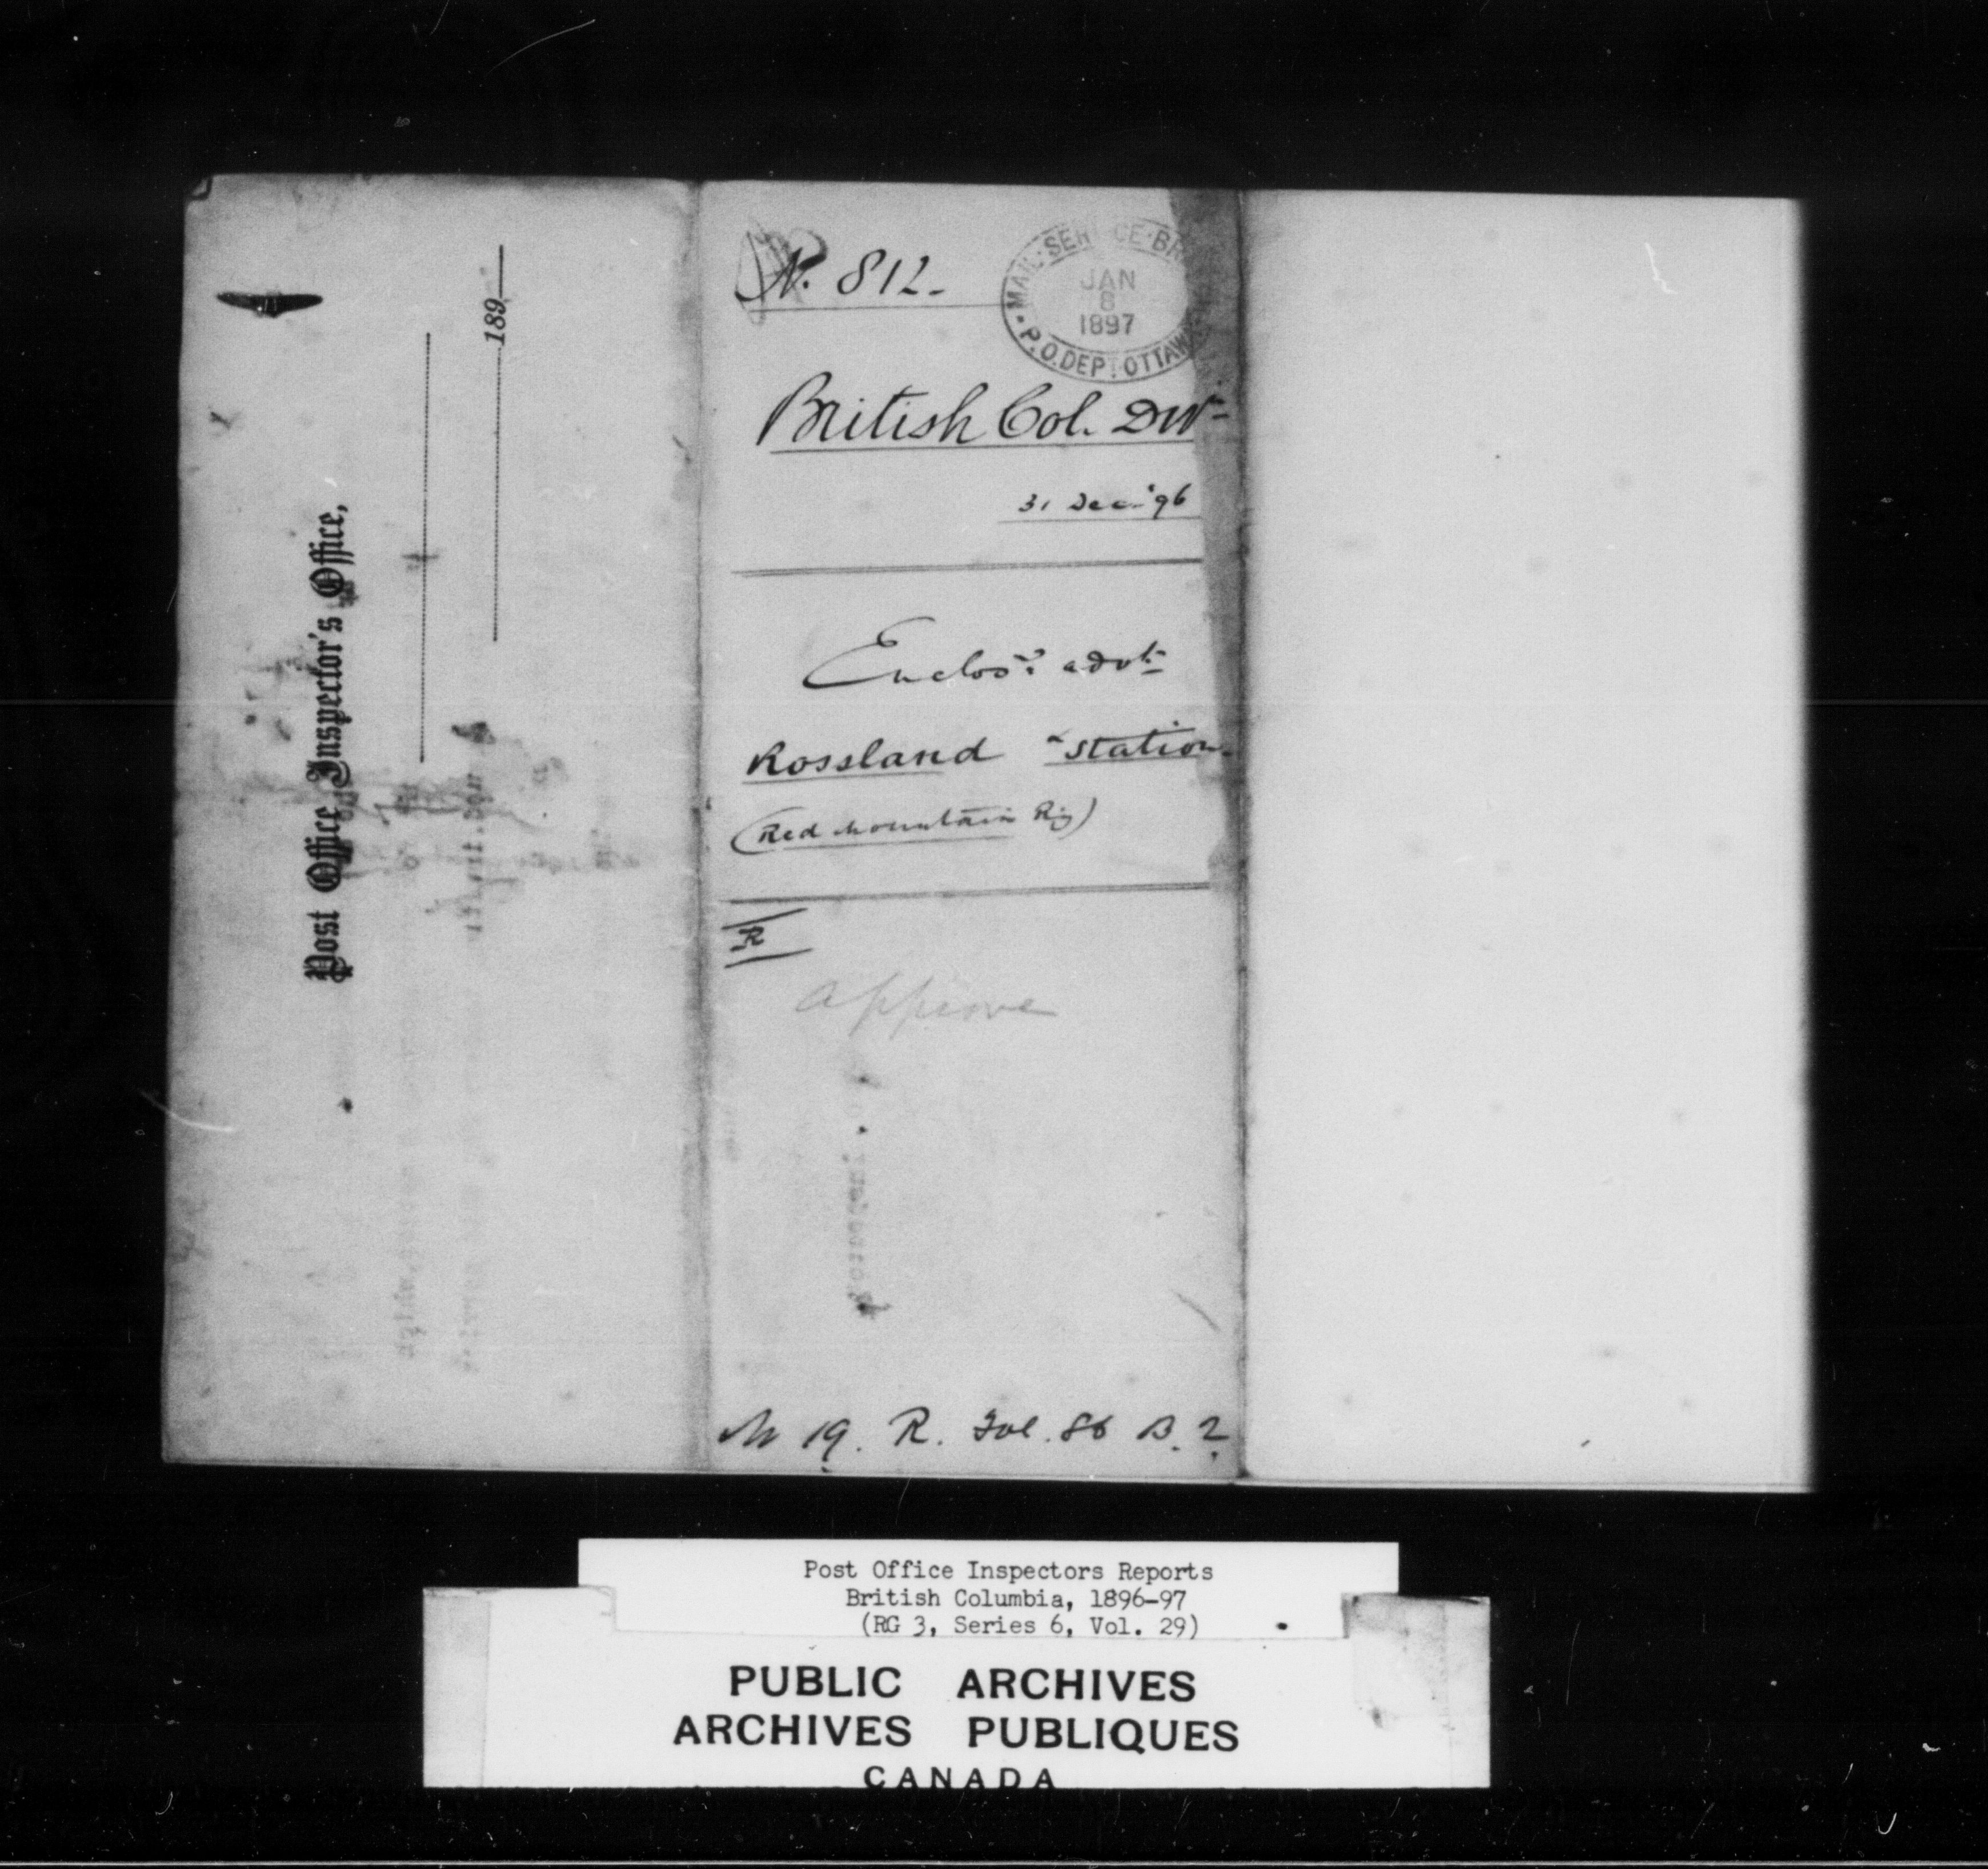 Post Office Inspector's Office,
189
N. 812.
MAIL SERVICE BR
JAN
8
1897
P.O. DEPT. OTTAWA
British Col. Divn
31 Dec. '96
Enclos? advt.
Rossland Station
(Red Mountain Ry)
R
approve
M 19. R. Fol. 86 B. 2
Post Office Inspectors Reports
British Columbia, 1896-97
(RG 3, Series 6, Vol. 29)
PUBLIC ARCHIVES
ARCHIVES PUBLIQUES
CANADA